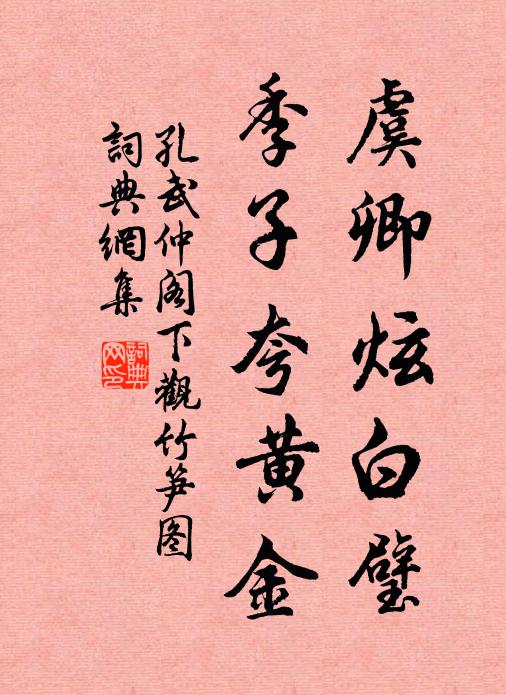 虞卿炫白璧
季子夸黄金
孔武仲阁下觀竹笋图
詞典網集
詞典网印